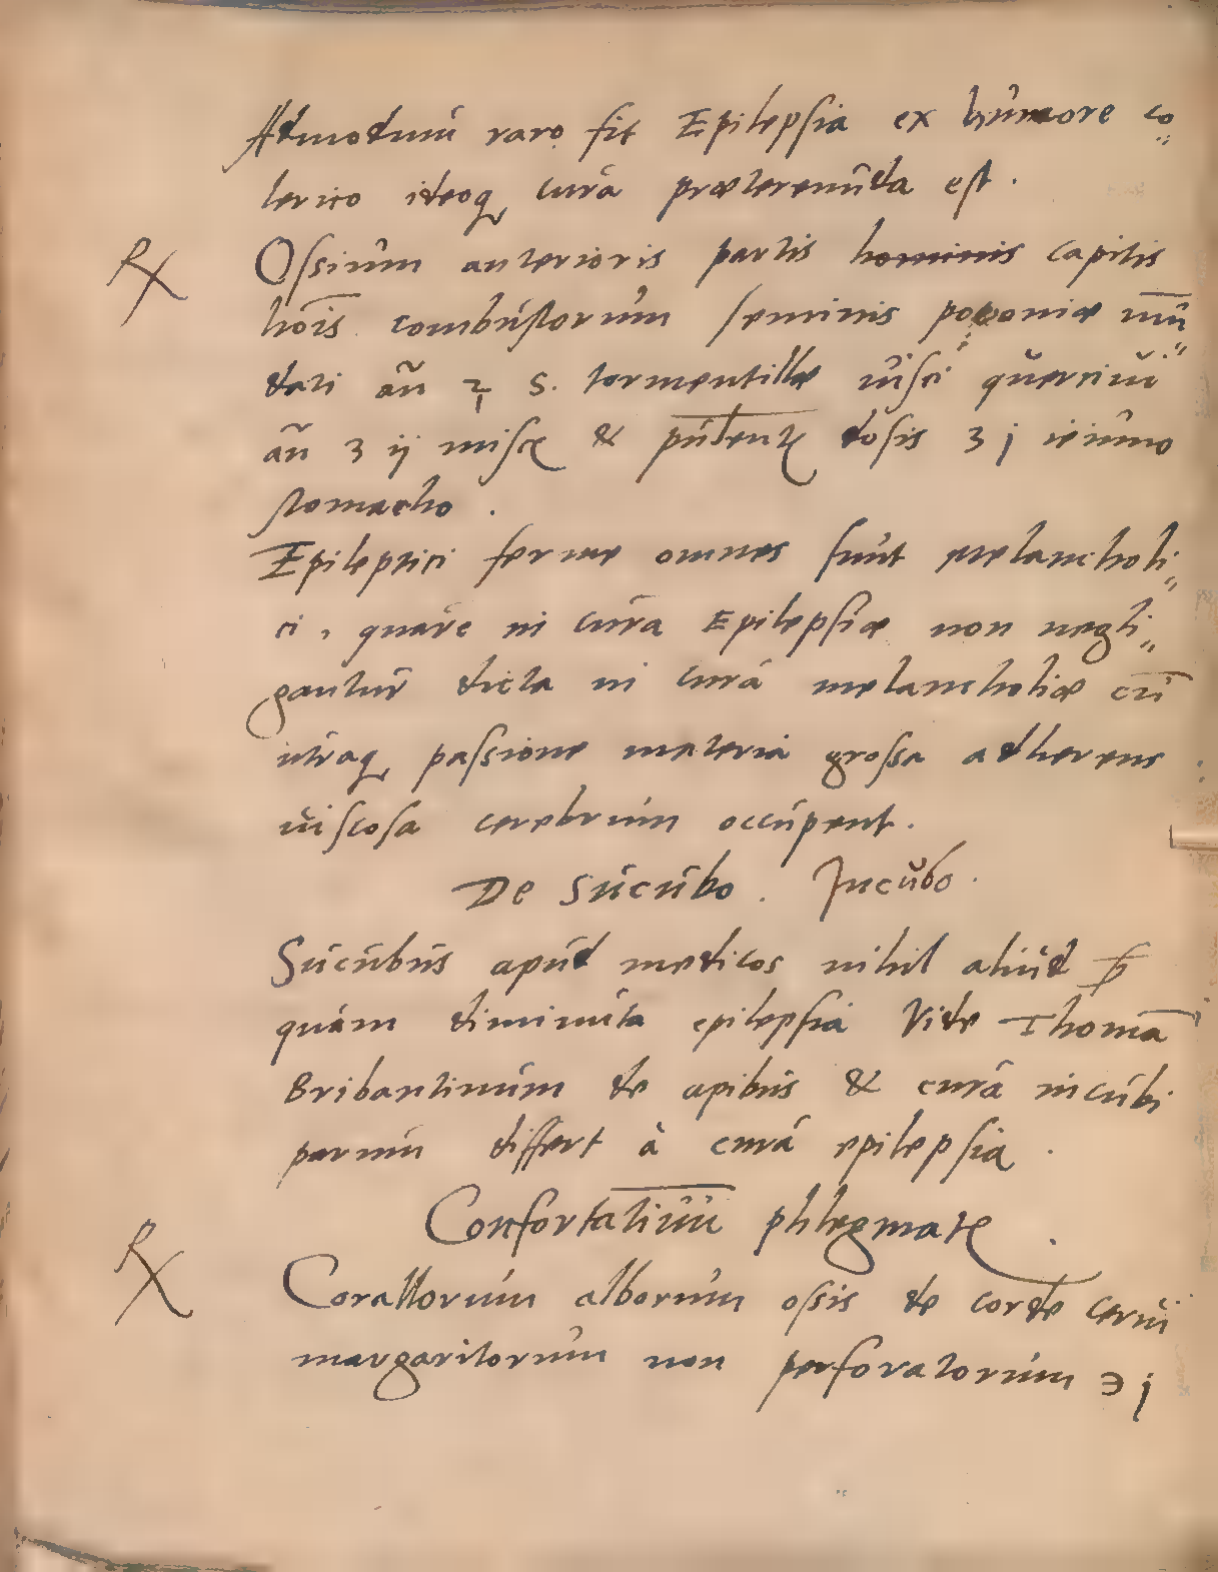 Admodum raro fit Epilepsia ex humore co„
lerico ideoq curā prætereunda est.
℞ Ossium anterioris partis hominis capitis
hois combustorum seminis poeoniæ mū„
dati añ ℥ s. tormentillæ visci quercini
añ ʒ ij misce & pulent dosis ʒ j ieiuno
stomacho.
Epileptici ferme omnes sunt melancholi„
ci, quare in cura Epilepsiæ non negli„
gantur dicta in cura melancholiæ cū
utraq passione materia grossa adherens
viscosa cerebrum occupent.
De Sucubo. Incubo.
Sucubus apud medicos nihil aliud
quam diminuta epilepsia Vide Thomā
Bribantinum de apibus & cura incubi
parum differt à cura epilepsia.
Confortatiuū phlegmate.
℞ Corallorum alborum ossis de corde cerui
margaritorum non perforatorum ℈ j